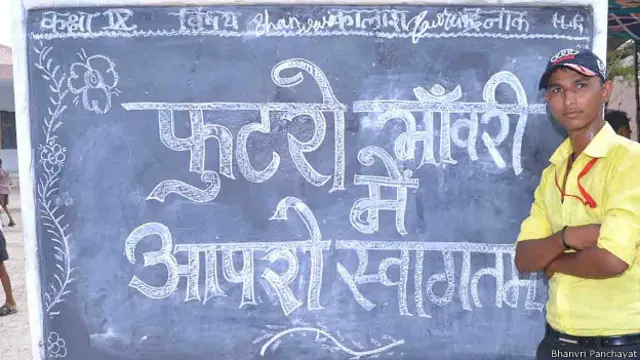 कक्षा IX विषय Bhanwar कालांश
फुटरो भाँवरी
में
आपरो स्वागतम
Bhanvri Panchayat